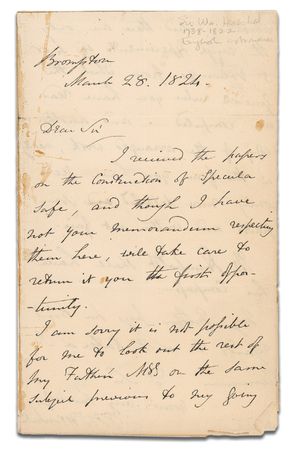 Sir Wm. Herschel
1738-1822
English astronomer
Brompton
March 28. 1824.
Dear Sir
I received the papers
on the Construction of Specula
safe, and though I have
not your memorandum respecting
them here, will take care to
return it you the first oppor-
-tunity.
I am sorry it is not possible
for me to look out the rest of
my Father's MSS on the same
subject previous to my going